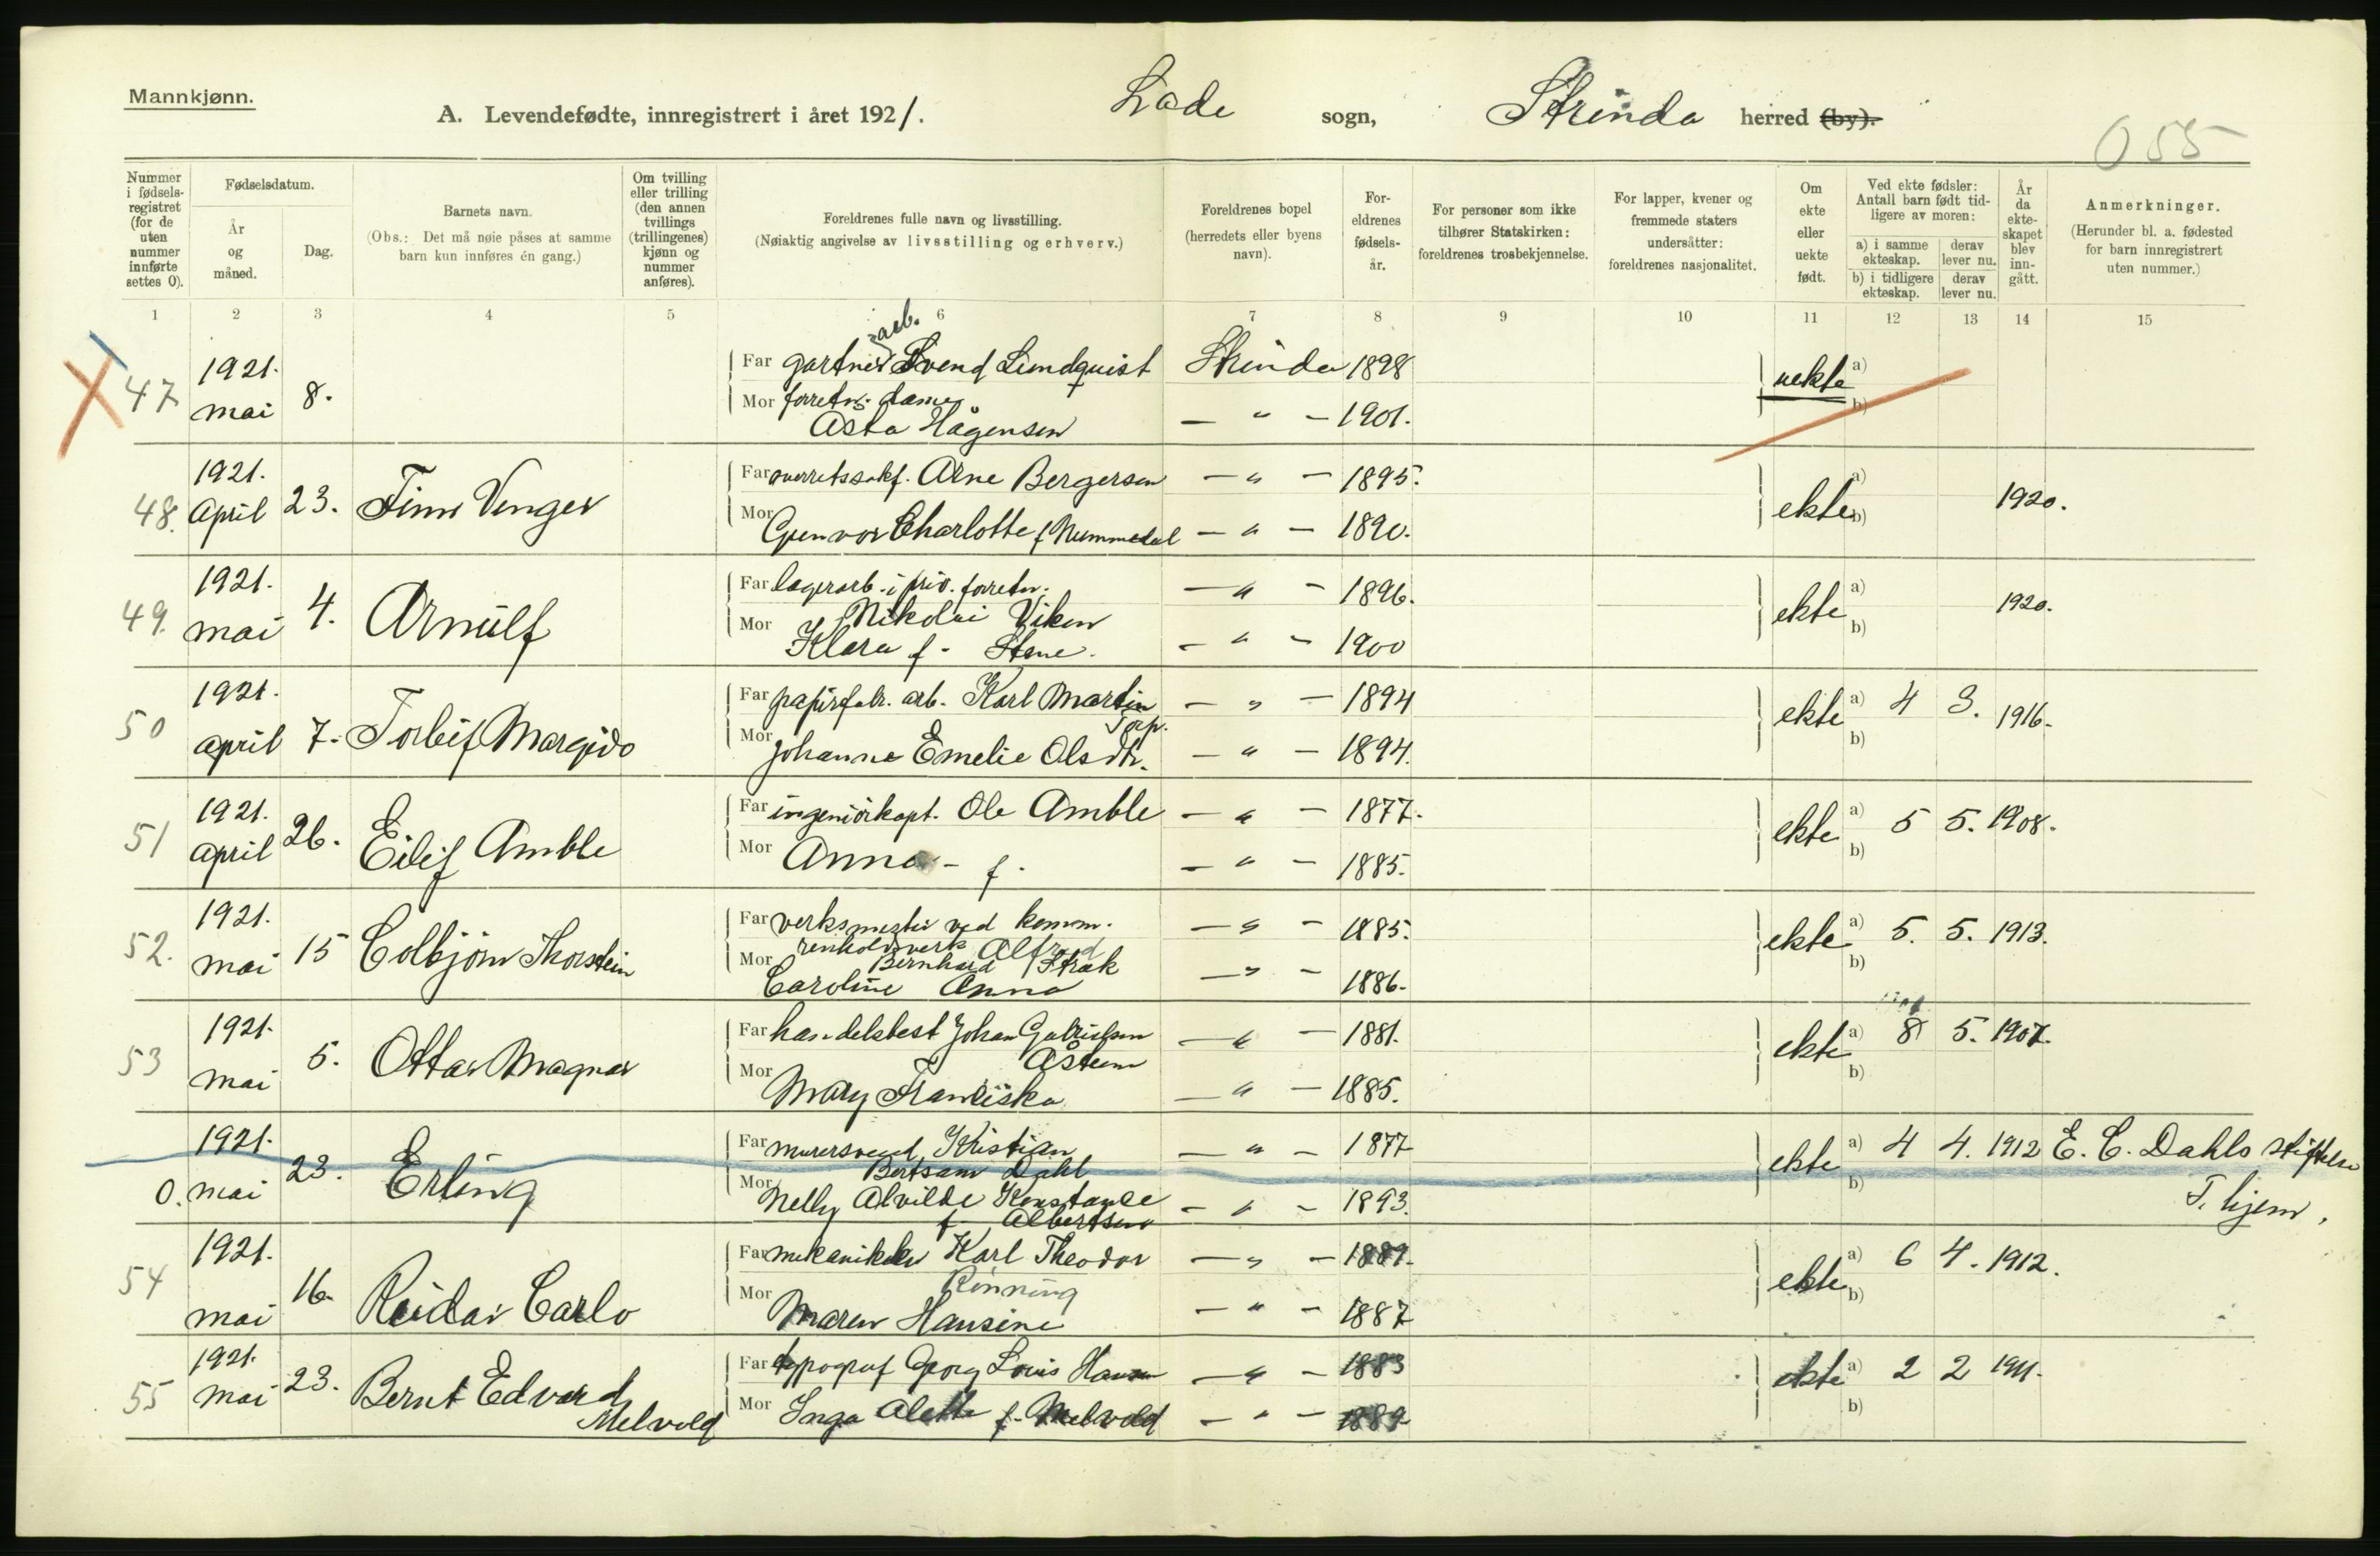 Mannkjønn.
A. Levendefødte, innregistrert i året 1921. Lade sogn, Strinda herred (by).
055
Nummer i fødselsregistret (for de uten nummer innførte settes 0).
Fødselsdatum.
År og måned.
Dag.
Barnets navn.
(Obs.: Det må nøie påses at samme barn kun innføres én gang.)
Om tvilling eller trilling (den annen tvillings (trillingenes) kjønn og nummer anføres).
Foreldrenes fulle navn og livsstilling.
(Nøiaktig angivelse av livsstilling og erhverv.)
Foreldrenes bopel (herredets eller byens navn).
Foreldrenes fødselsår.
For personer som ikke tilhører Statskirken: foreldrenes trosbekjennelse.
For lapper, kvener og fremmede staters undersåtter: foreldrenes nasjonalitet.
Om ekte eller uekte født.
Ved ekte fødsler: Antall barn født tidligere av moren:
a) i samme ekteskap. derav lever nu.
b) i tidligere ekteskap. derav lever nu.
År da ekteskapet blev inngått.
Anmerkninger.
(Herunder bl. a. fødested for barn innregistrert uten nummer.)
1 2 3 4 5 6 7 8 9 10 11 12 13 14 15
47 1921. mai 8.
Far gartner arb. Svend Lundquist Strinda 1898
Mor forretn. dame Asta Hågensen — " — 1901.
uekte a) b)
48. 1921. April 23. Finn Venger
Far overretssakf. Arne Bergersen — " — 1895.
Mor Gunvor Charlotte f. Nummedal — " — 1890.
ekte a) b) 1920.
49. 1921. mai 4. Arnulf
Far lagerarb. i priv. forretn. Nikolai Viken — " — 1896.
Mor Klara f. Stene. — " — 1900
ekte a) b) 1920.
50 1921. april 7. Torleif Margido
Far papirfabr. arb. Karl Martin Torp. — " — 1894
Mor Johanne Emelie Olsdtr. — " — 1894.
ekte a) 4 3. 1916. b)
51 1921. april 26. Eilif Amble
Far ingeniörkapt. Ole Amble — " — 1877.
Mor Anna - f. — " — 1885.
ekte a) 5 5. 1908. b)
52. 1921. mai 15 Colbjörn Thorstein
Far verksmester ved komm. renholdsverk Alfred Bernhard Strøk — " — 1885.
Mor Caroline Anna — " — 1886.
ekte a) 5. 5. 1913. b)
53 1921. mai 5. Ottar Magnar
Far handelsbest Johan Gabrielsen Åsteen — " — 1881.
Mor Mary Franciska — " — 1885.
ekte a) 8 5. 1907. b)
0. 1921. mai 23. Erling
Far murersvend Kristian Bertsam Dahl — " — 1877
Mor Nelly Alvilde Konstance f. Albertsen — " — 1893.
ekte a) 4 4. 1912 b) E. C. Dahls stiftelse T.hjem.
54 1921. mai 16. Reidar Carlo
Far mekaniker Karl Theodor Rönning — " — 1889.
Mor Maren Hansine — " — 1887
ekte a) 6 4. 1912. b)
55 1921. mai 23. Bernt Edvard Melvold
Far typograf Georg Louis Hansen — " — 1883
Mor Inga Alette f. Melvold — " — 1889
ekte a) 2 2 1911. b)